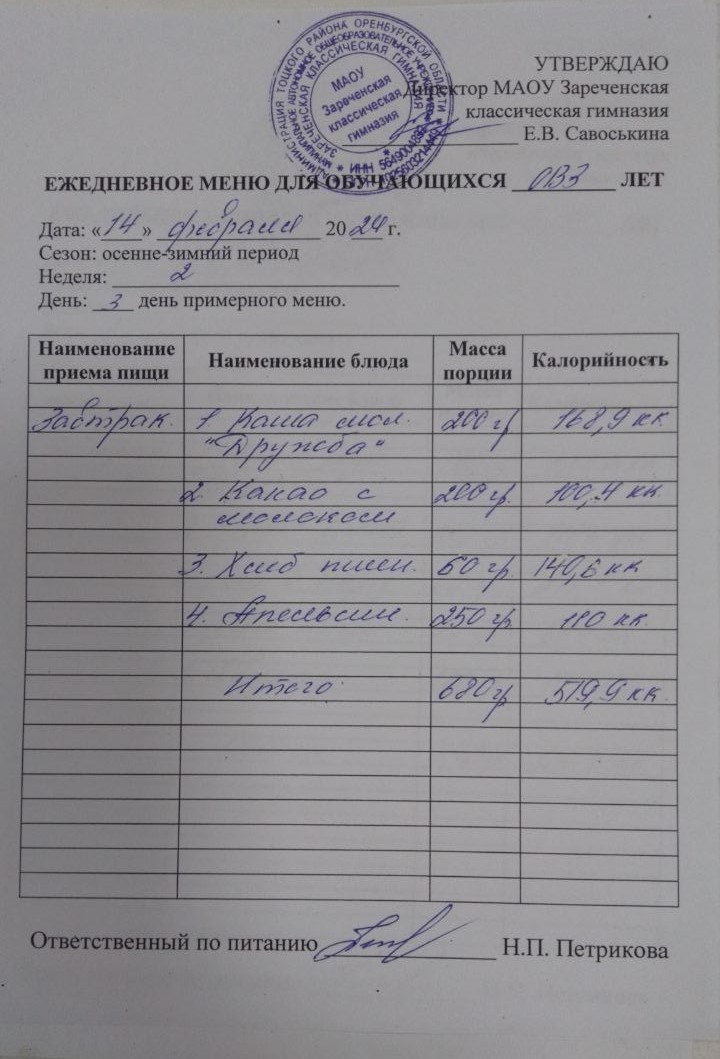 АДМИНИСТРАЦИЯ ТОЦКОГО РАЙОНА ОРЕНБУРГСКОЙ ОБЛАСТИ
МУНИЦИПАЛЬНОЕ АВТОНОМНОЕ ОБЩЕОБРАЗОВАТЕЛЬНОЕ УЧРЕЖДЕНИЕ
ЗАРЕЧЕНСКАЯ КЛАССИЧЕСКАЯ ГИМНАЗИЯ
МАОУ
Зареченская
классическая
гимназия
УТВЕРЖДАЮ
Директор МАОУ Зареченская
классическая гимназия
Е.В. Савоськина
ЕЖЕДНЕВНОЕ МЕНЮ ДЛЯ ОБУЧАЮЩИХСЯ ОВЗ ЛЕТ
Дата: «14» февраля 2024 г.
Сезон: осенне-зимний период
Неделя: 2
День: 3 день примерного меню.
Наименование приема пищи Наименование блюда Масса порции Калорийность
Завтрак. 1 Каша мол. 200 гр 168,9 кк.
"Дружба"
2. Какао с 200 гр. 100,4 кк.
молоком
3. Хлеб пшен. 60 гр. 140,6 кк
4. Апельсин. 250 гр 110 кк.
Итого 680 гр 519,9 кк.
Ответственный по питанию Н.П. Петрикова